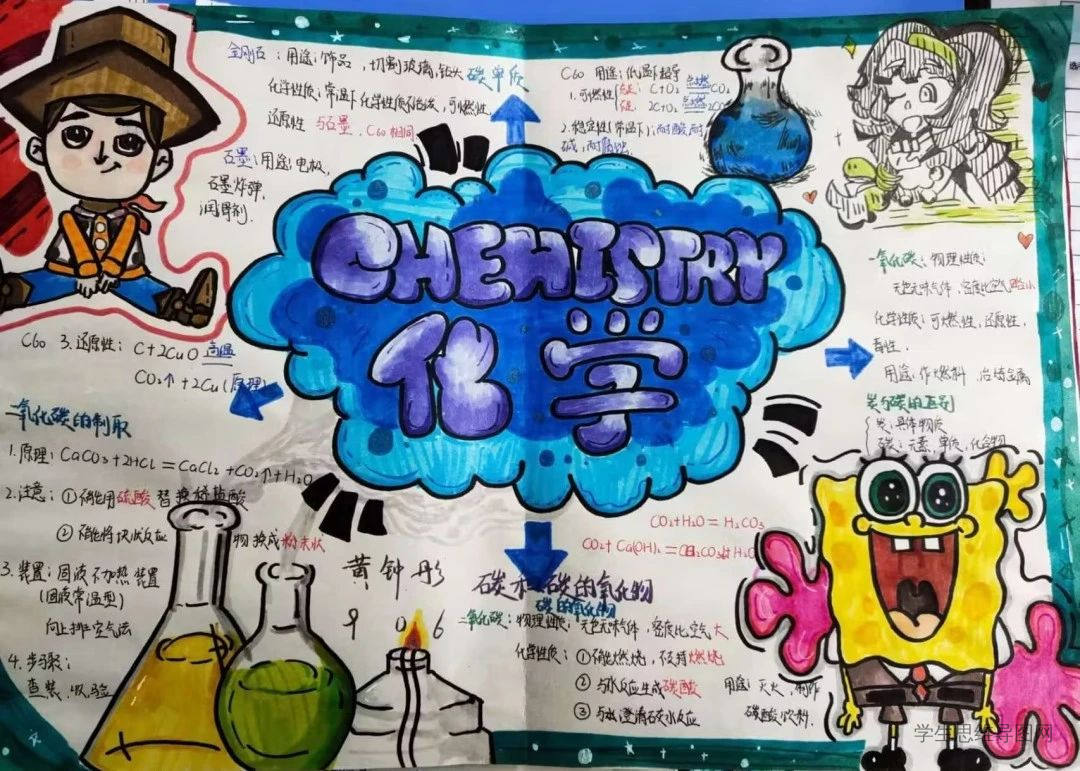 金刚石：用途：饰品，切割玻璃，钻头
碳单质
化学性质：常温下化学性质不活泼，可燃性
还原性 与石墨，C60相同
石墨：用途：电极，
石墨炸弹，
润滑剂.
C60 用途：低温下超导
1.可燃性
充足：C+O2 点燃 CO2
2C+O2 点燃 2CO
2.稳定性(常温下)：耐酸耐
碱，耐腐蚀.
CHEMISTRY
化学
C60 3.还原性：C+2CuO 高温
CO2↑+2Cu(原理)
二氧化碳的制取
1.原理：CaCO3+2HCl=CaCl2+CO2↑+H2O
2.注意：①不能用硫酸替换稀盐酸
②不能将块状反应物换成粉末状
3.装置：固液不加热装置
(固液常温型)
向上排空气法
4.步骤：
查、装、收、验
黄钟彤
906
一氧化碳：物理性质：
无色无味气体，密度比空气略小
化学性质：可燃性，还原性，
毒性.
用途：作燃料，冶炼金属
炭与碳的区别
炭：具体物质
碳：元素，单质，化合物
CO2+H2O=H2CO3
CO2+Ca(OH)2=CaCO3↓+H2O
碳和碳的氧化物
碳的氧化物
二氧化碳：物理性质：无色无味气体，密度比空气大
化学性质：①不能燃烧，不支持燃烧
②与水反应生成碳酸
③与澄清石灰水反应
用途：灭火、制作
碳酸饮料.
学生思维导图网